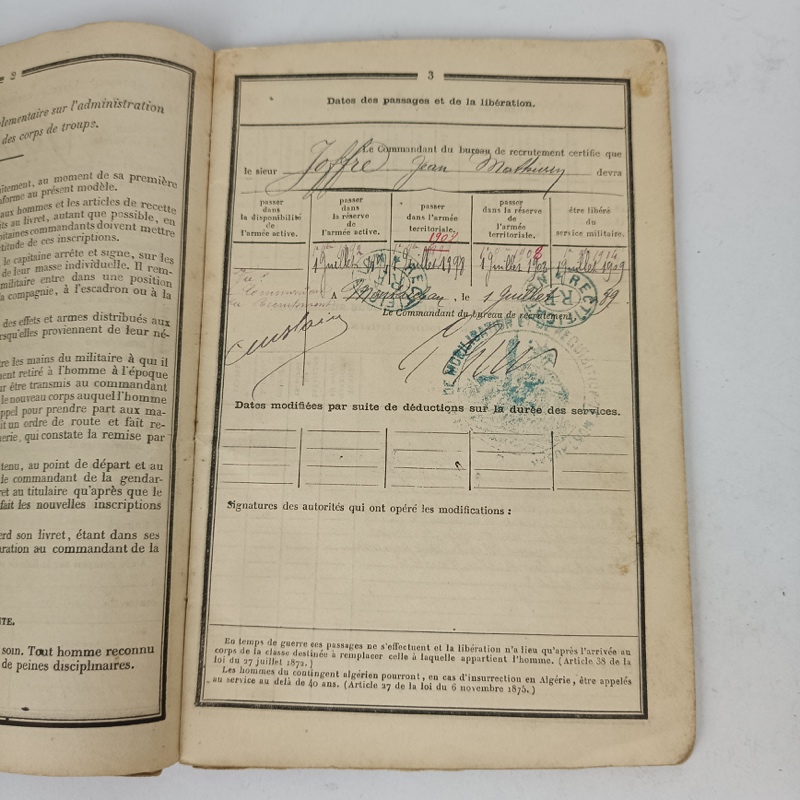 2
plémentaire sur l'administration
des corps de troupe.
au moment de sa première
forme au présent modèle.
aux hommes et les articles de recette
its au livret, autant que possible, en
pitaines commandants doivent mettre
titude de ces inscriptions.
le capitaine arrête et signe, sur les
de leur masse individuelle. Il rem-
militaire entre dans une position
la compagnie, à l'escadron ou à la
des effets et armes distribués aux
rsqu'elles proviennent de leur né-
re les mains du militaire à qui il
ment retiré à l'homme à l'époque
ur être transmis au commandant
le nouveau corps auquel l'homme
appel pour prendre part aux ma-
it un ordre de route et fait re-
nerie, qui constate la remise par
tenu, au point de départ et au
le commandant de la gendar-
ret au titulaire qu'après que le
fait les nouvelles inscriptions
erd son livret, étant dans ses
ration au commandant de la
soin. Tout homme reconnu
de peines disciplinaires.
3
Dates des passages et de la libération.
Le Commandant du bureau de recrutement certifie que
le sieur Joffre Jean Mathurin devra
passer dans la disponibilité de l'armée active.
passer dans la réserve de l'armée active.
passer dans l'armée territoriale.
passer dans la réserve de l'armée territoriale.
être libéré du service militaire.
1902
juillet 1898
A Montauban, le 1 juillet 89
Le Commandant du bureau de recrutement
Dates modifiées par suite de déductions sur la durée des services.
Signatures des autorités qui ont opéré les modifications :
En temps de guerre ces passages ne s'effectuent et la libération n'a lieu qu'après l'arrivée au
corps de la classe destinée à remplacer celle à laquelle appartient l'homme. (Article 38 de la
loi du 27 juillet 1872.)
Les hommes du contingent algérien pourront, en cas d'insurrection en Algérie, être appelés
au service au delà de 40 ans. (Article 27 de la loi du 6 novembre 1875.)